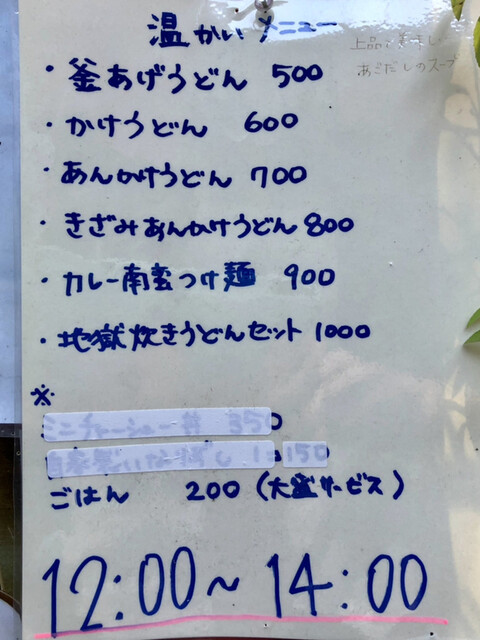 温かいメニュー
上品で美味しい
あごだしのスープ
・釜あげうどん 500
・かけうどん 600
・あんかけうどん 700
・きざみあんかけうどん 800
・カレー南蛮つけ麺 900
・地獄炊きうどんセット 1000
※
ミニチャーシュー丼 350
自家製いなずし 1コ150
ごはん 200 (大盛サービス)
12:00~14:00